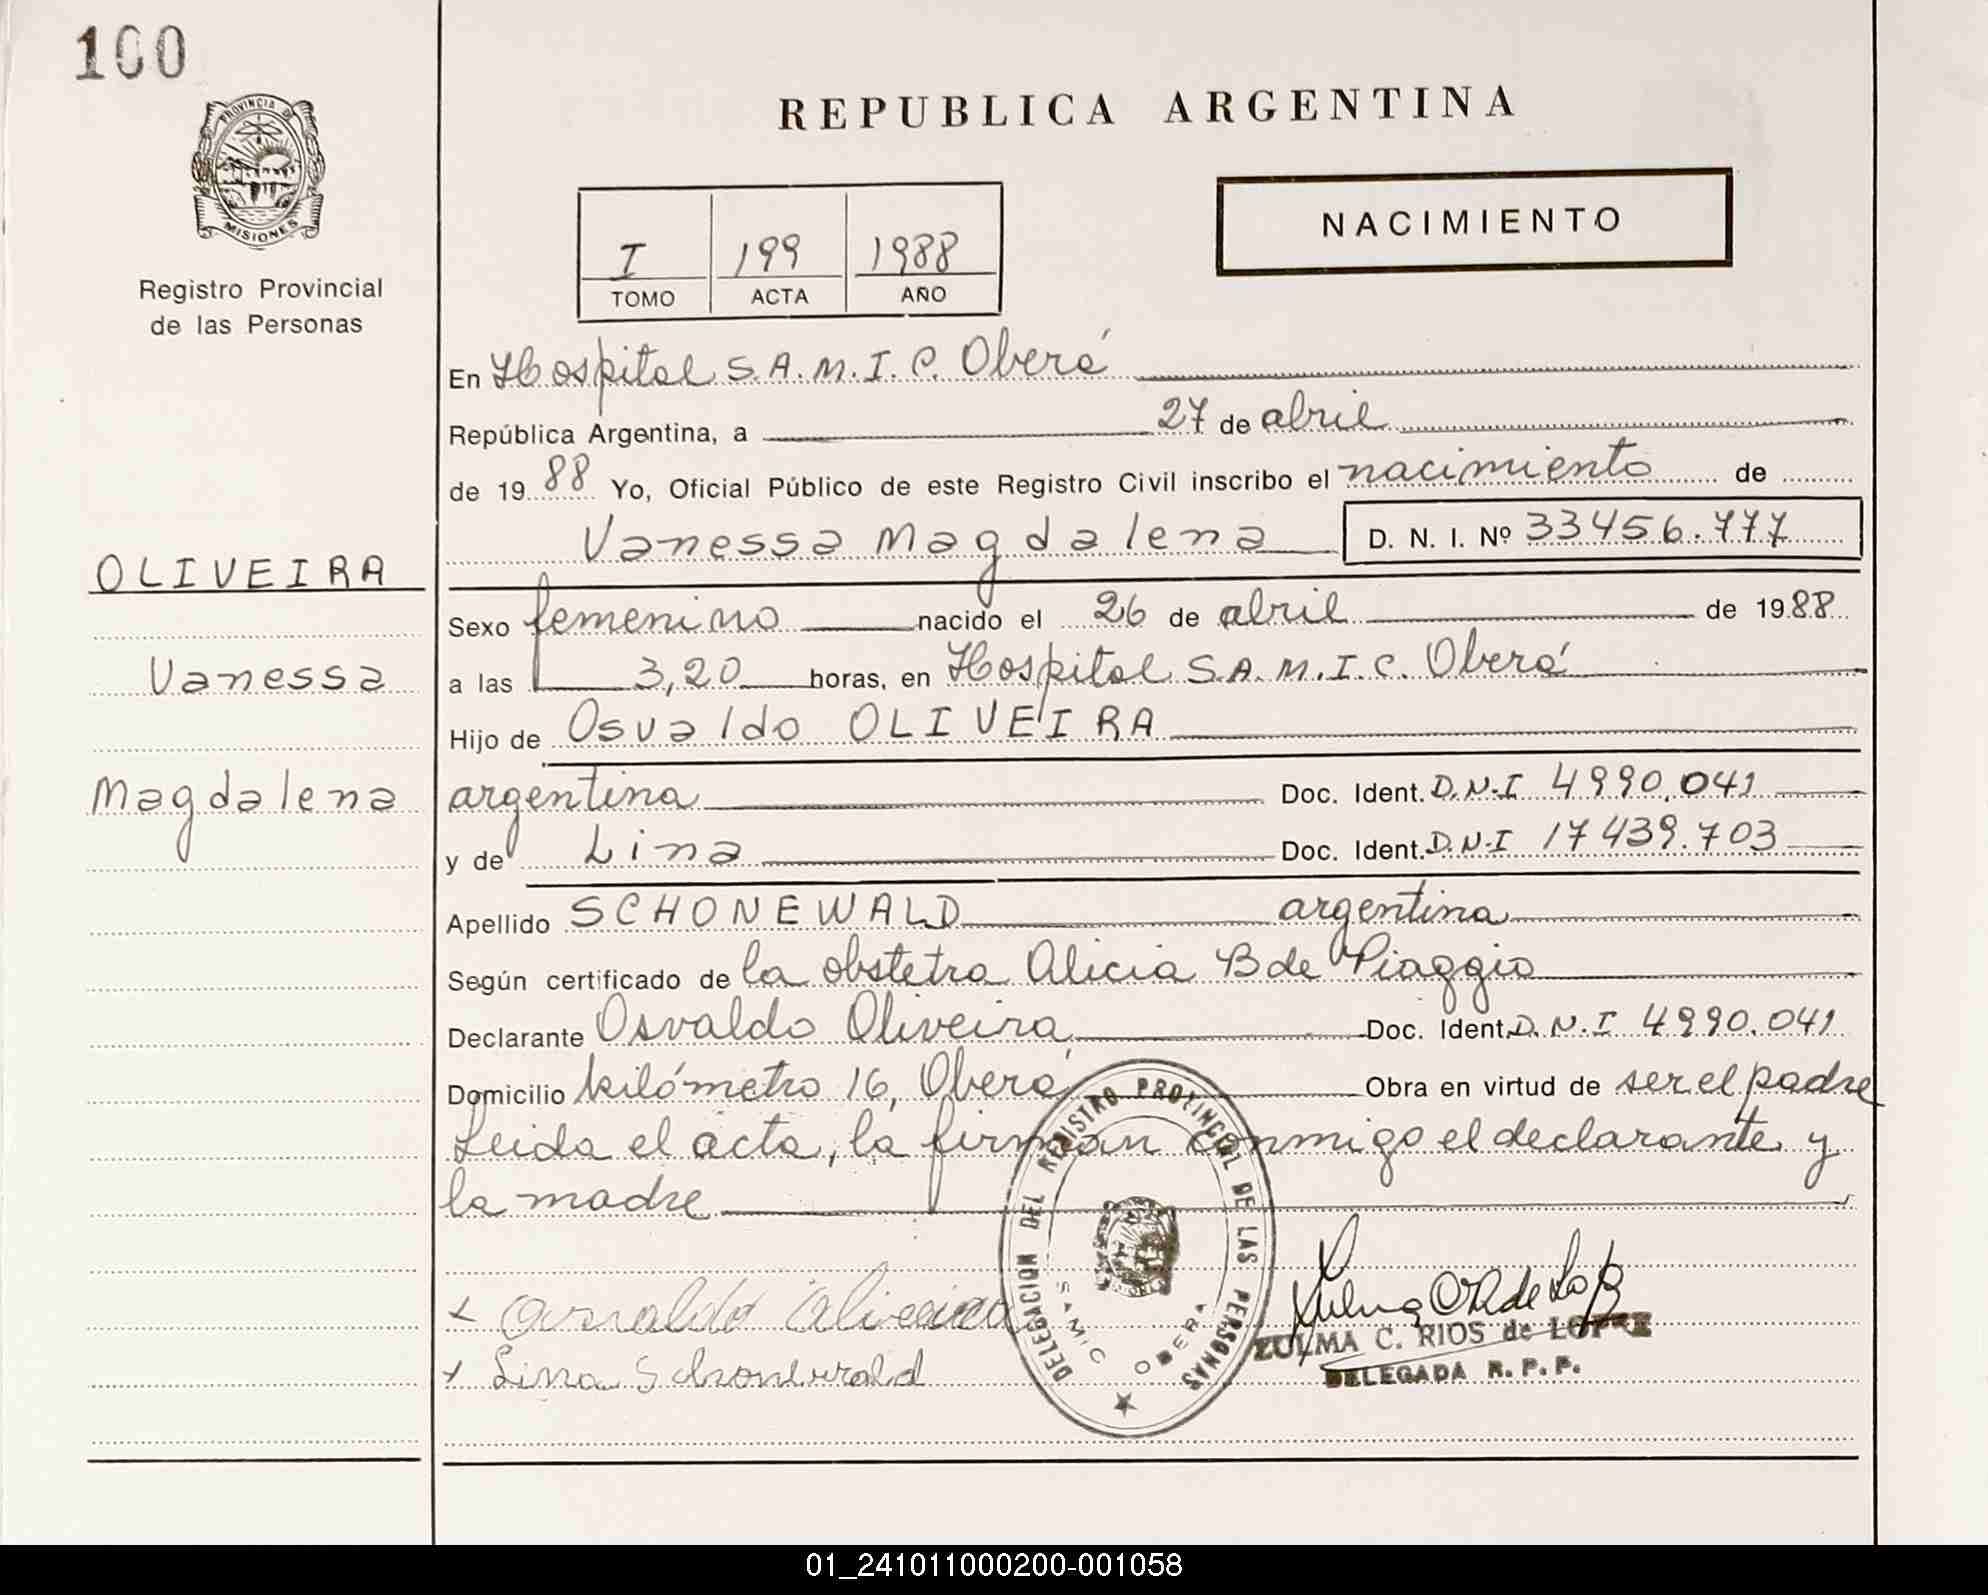 100
PROVINCIA DE
MISIONES
Registro Provincial
de las Personas
OLIVEIRA
Vanessa
Magdalena
REPUBLICA ARGENTINA
I 199 1988
TOMO ACTA AÑO
NACIMIENTO
En Hospital S.A.M.I.C. Oberá
República Argentina, a 27 de abril
de 1988 Yo, Oficial Público de este Registro Civil inscribo el nacimiento de
Vanessa Magdalena D. N. I. Nº 33456.777
Sexo femenino nacido el 26 de abril de 1988
a las 3,20 horas, en Hospital S.A.M.I.C. Oberá
Hijo de Osvaldo OLIVEIRA
argentina Doc. Ident. D.N.I 4990.041
y de Lina Doc. Ident. D.N.I 17439.703
Apellido SCHONEWALD argentina
Según certificado de la obstetra Alicia B de Piaggio
Declarante Osvaldo Oliveira Doc. Ident. D.N.I 4990.041
Domicilio kilómetro 16, Oberá Obra en virtud de ser el padre
Leida el acta, la firman conmigo el declarante y
la madre
DELEGACION DEL REGISTRO PROVINCIAL DE LAS PERSONAS
SAMIC OBERA
Lina Schonewald
ZULMA C. RIOS de LOPEZ
DELEGADA R. P. P.
01_241011000200-001058